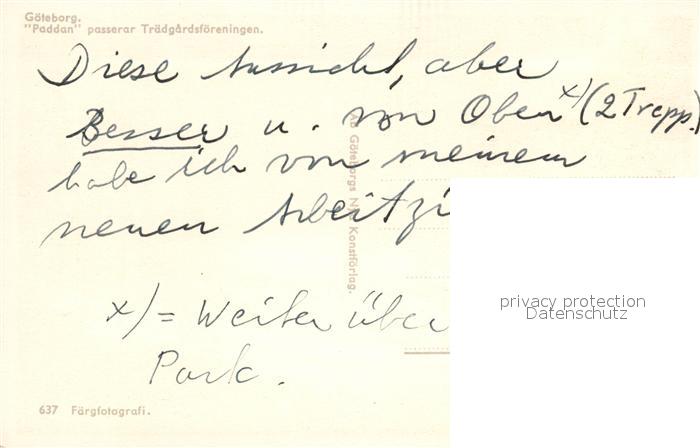 Göteborg.
"Paddan" passerar Trädgårdsföreningen.
Diese Aussicht, aber
Besser u. von Oben x) (2 Trepp.)
habe ich von meinem
neuen Arbeitzi
x) = Weiter über
Park.
AB Göteborgs Konstförlag.
637 Färgfotografi.
privacy protection
Datenschutz